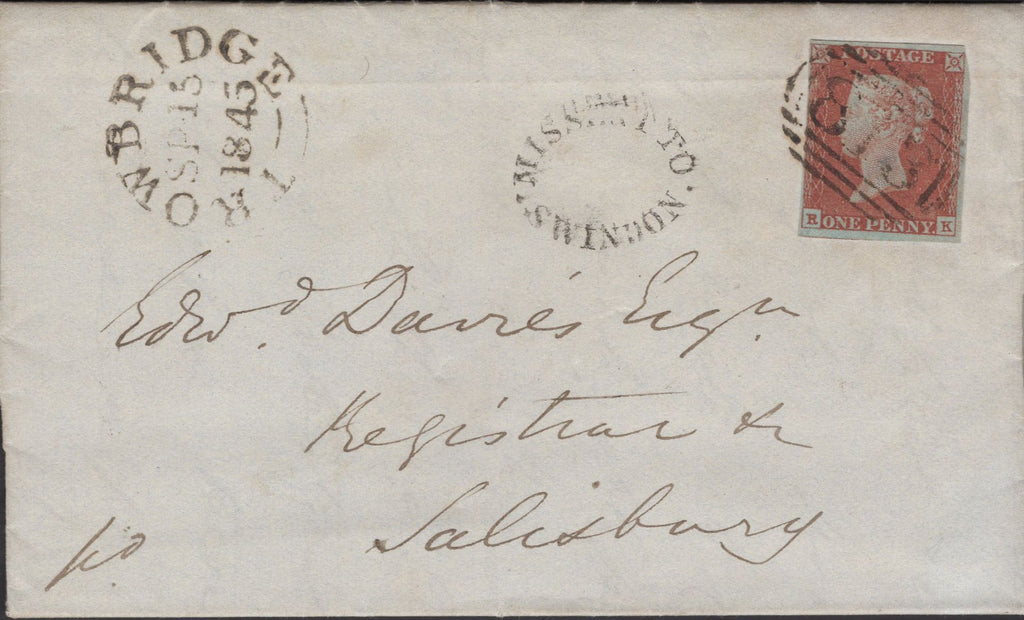 TROWBRIDGE
SP 15
1845
MISSENT TO
SWINDON.
POSTAGE
ONE PENNY
R K
Edwd. Davies Esqr.
Registrar &c
Salisbury
pd